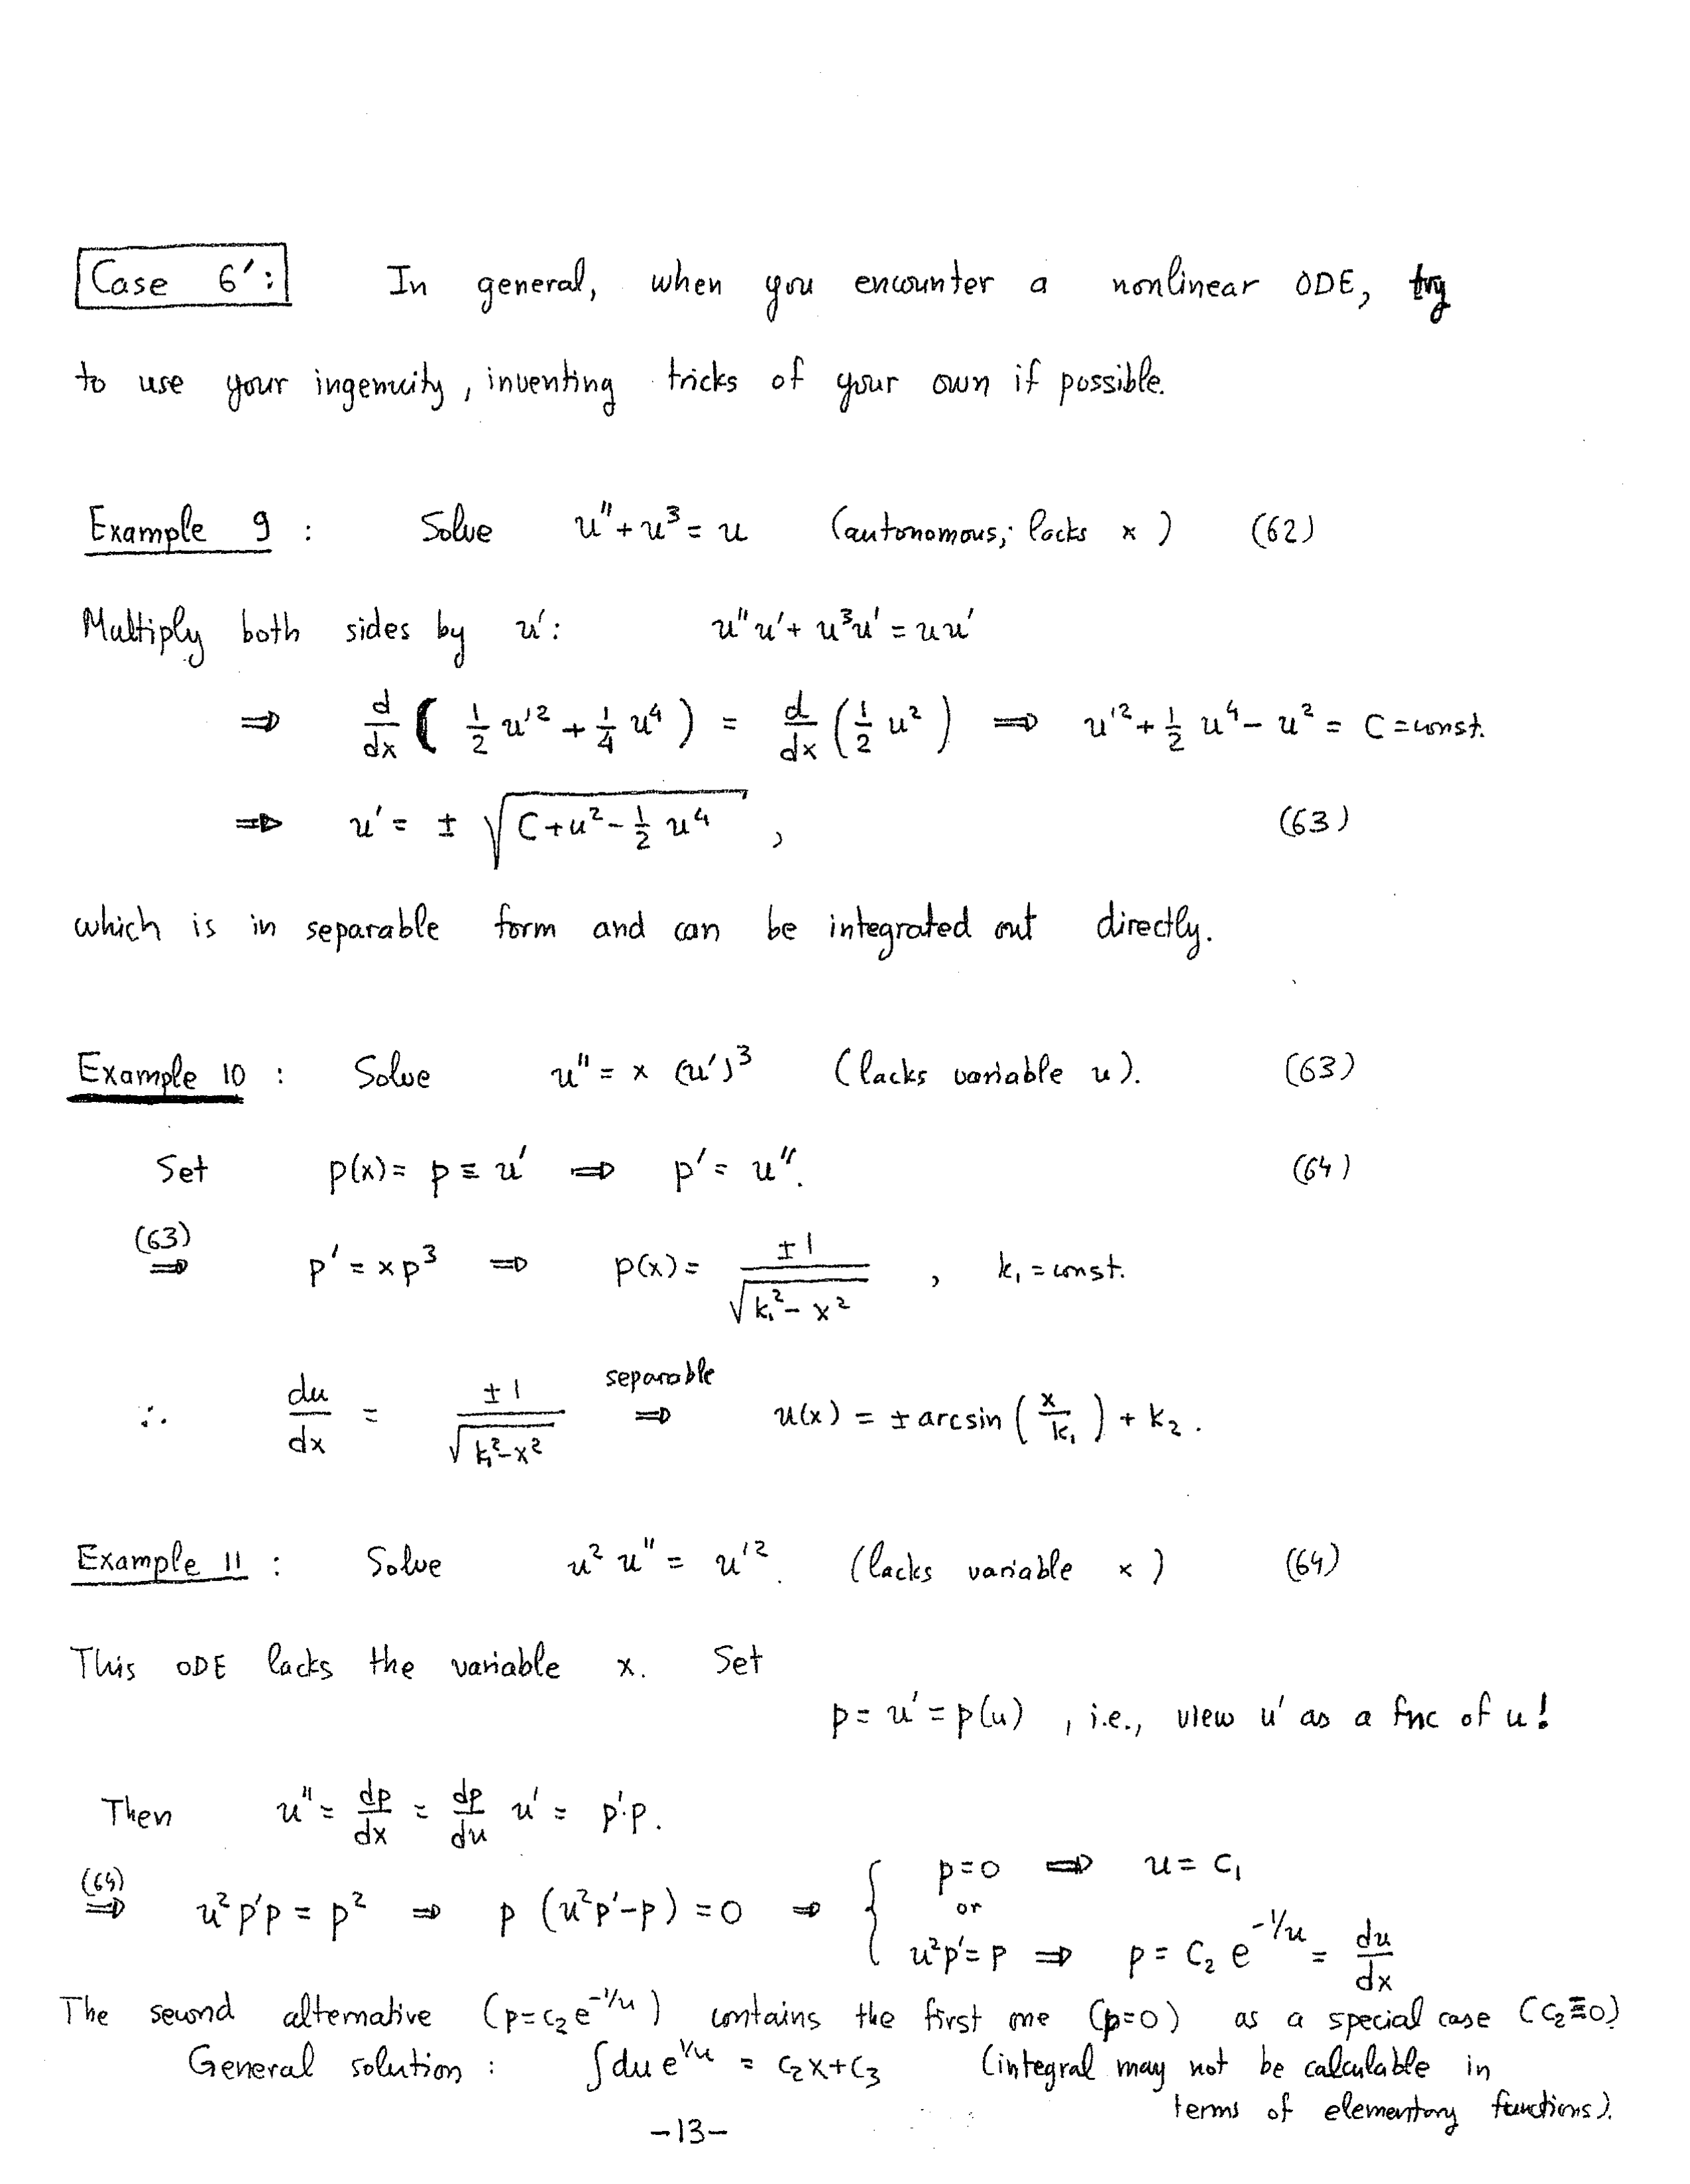 Case 6′: In general, when you encounter a nonlinear ODE, try
to use your ingenuity, inventing tricks of your own if possible.
Example 9 : Solve u″ + u³ = u (autonomous; lacks x) (62)
Multiply both sides by u′: u″u′ + u³u′ = uu′
⇒ d/dx ( 1/2 u′² + 1/4 u⁴ ) = d/dx ( 1/2 u² ) ⇒ u′² + 1/2 u⁴ − u² = C = const.
⇒ u′ = ± √(C + u² − 1/2 u⁴) , (63)
which is in separable form and can be integrated out directly.
Example 10 : Solve u″ = x (u′)³ (lacks variable u). (63)
Set p(x) = p ≡ u′ ⇒ p′ = u″. (64)
(63) ⇒ p′ = xp³ ⇒ p(x) = ±1/√(k₁² − x²) , k₁ = const.
∴ du/dx = ±1/√(k₁² − x²) separable ⇒ u(x) = ± arcsin (x/k₁) + k₂ .
Example 11 : Solve u² u″ = u′². (lacks variable x) (64)
This ODE lacks the variable x. Set
p = u′ = p(u) , i.e., view u′ as a fnc of u!
Then u″ = dp/dx = dp/du u′ = p′·p.
(64) ⇒ u²p′p = p² ⇒ p (u²p′ − p) = 0 ⇒ { p = 0 ⇒ u = C₁
or
u²p′ = p ⇒ p = C₂ e^(−1/u) = du/dx
The second alternative (p = c₂e^(−1/u)) contains the first one (p=0) as a special case (C₂≡0)
General solution : ∫du e^(1/u) = C₂x + C₃ (integral may not be calculable in
terms of elementary functions).
−13−